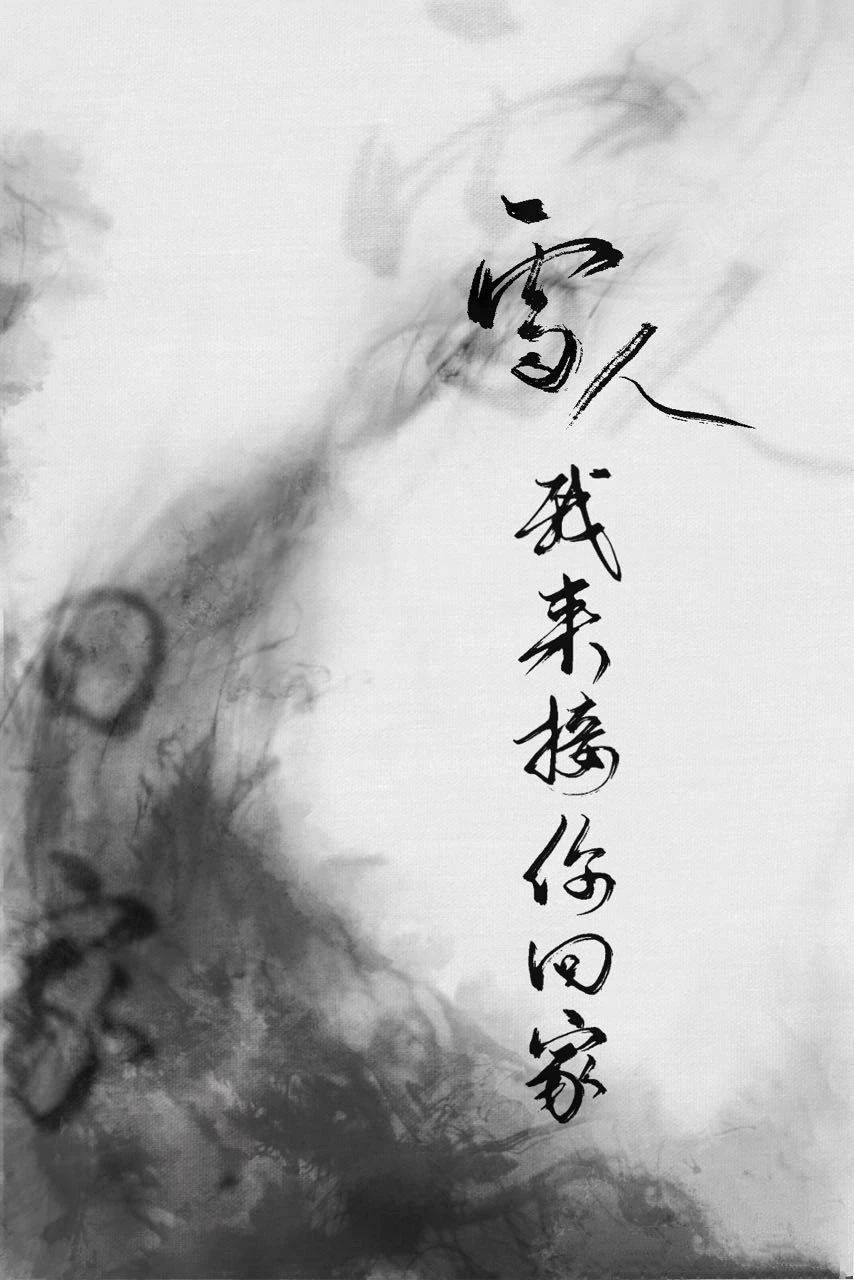 雪人
我来接你回家